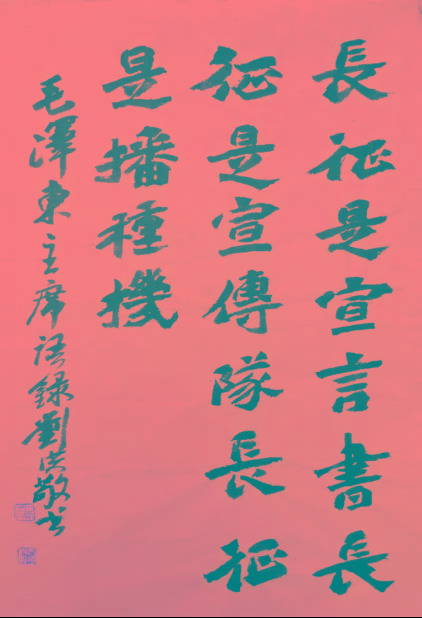 長征是宣言書長
征是宣傳隊長征
是播種機
毛澤東主席语録劉洪敬书